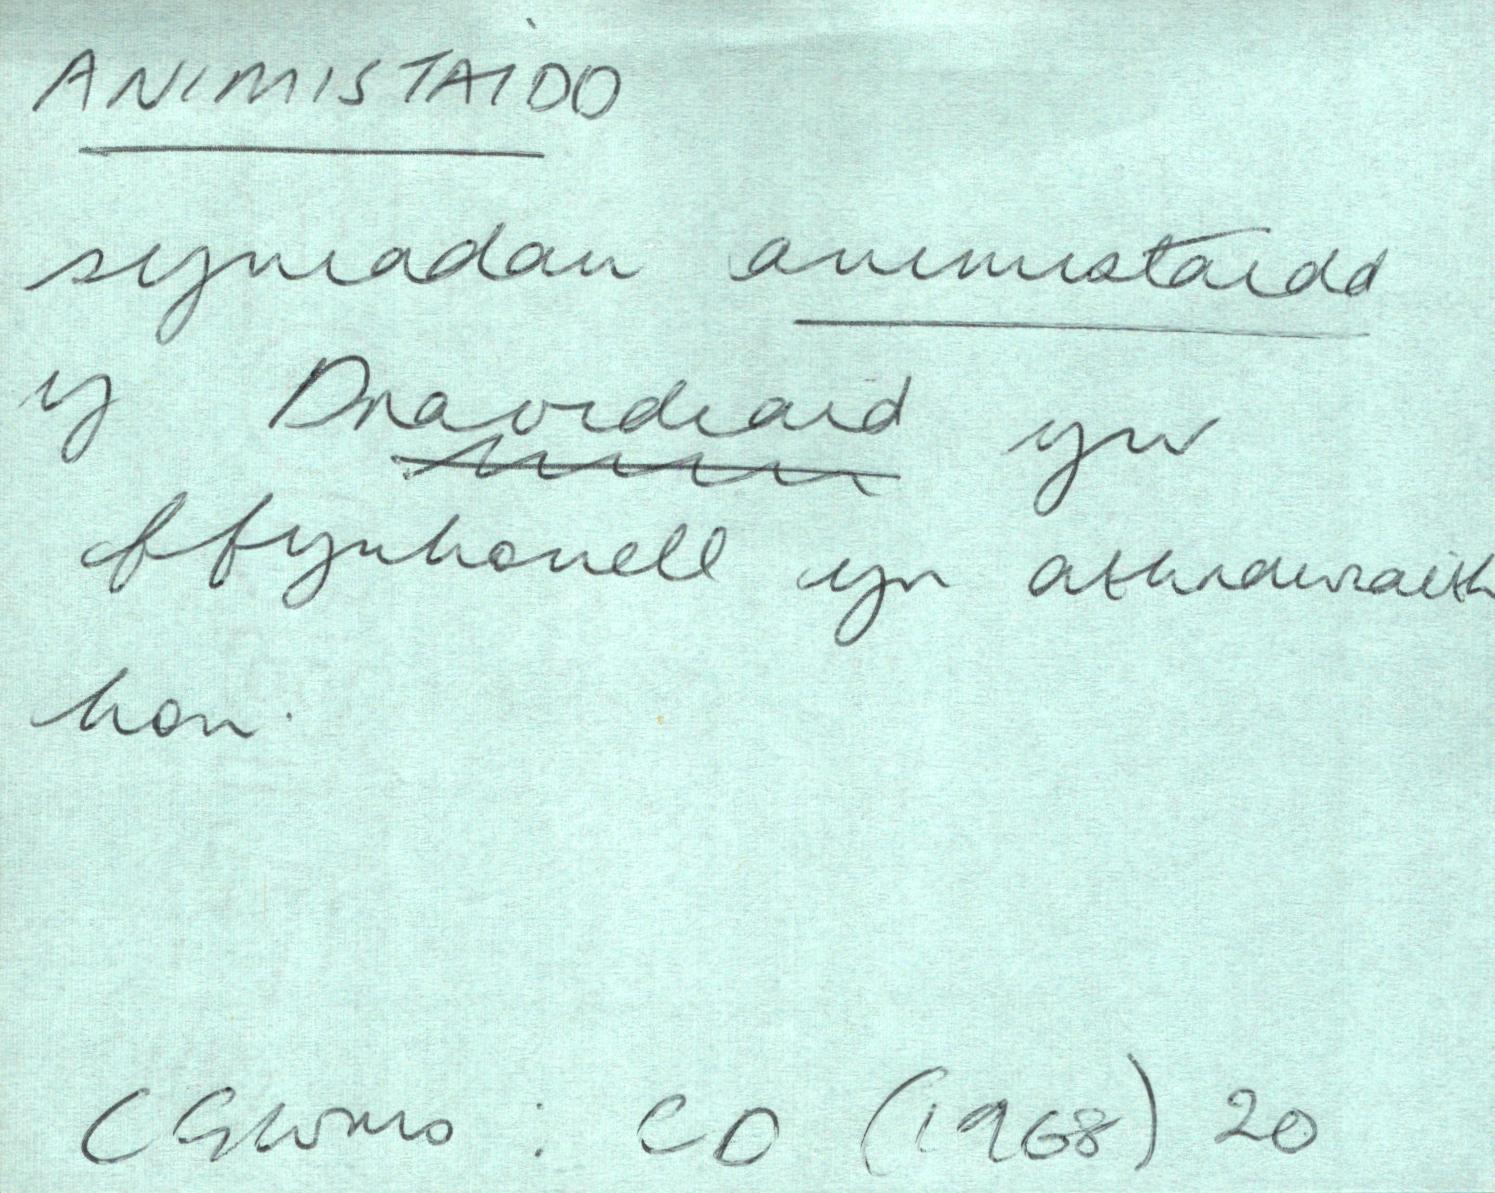 ANIMISTAIDD
syniadau animistaidd
y Dravidiaid yw
ffynhonell yr athrawiaeth
hon.
: CD (1968) 20